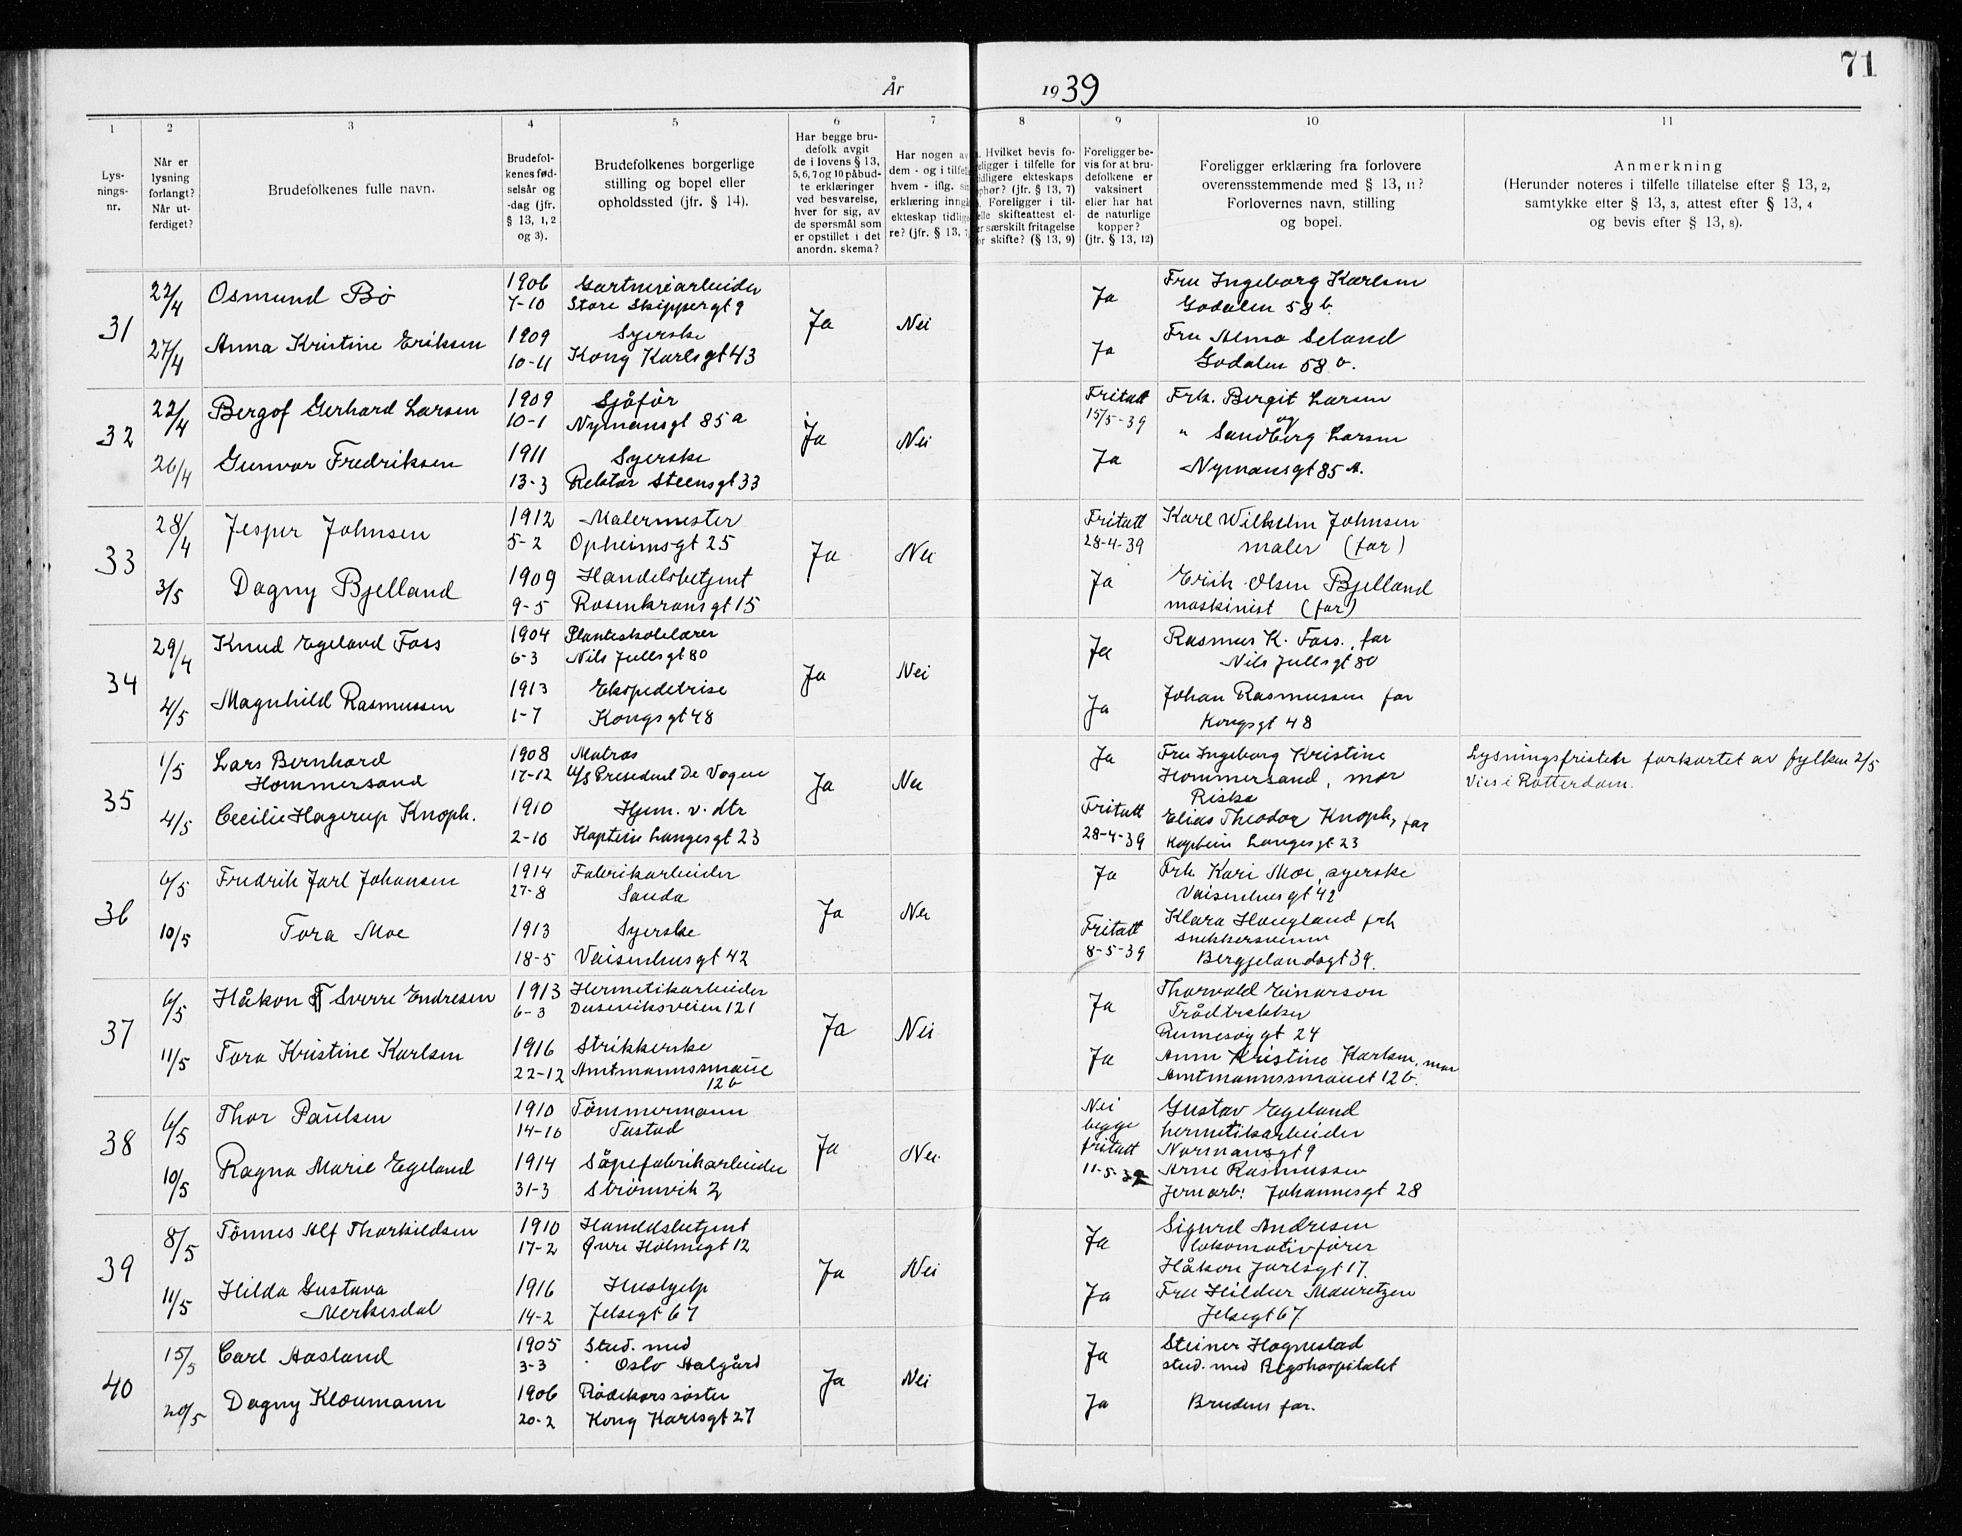 71
År 1939
1 2 3 4 5 6 7 8 9 10 11
Lys-
nings-
nr.
Når er
lysning
forlangt?
Når ut-
ferdiget?
Brudefolkenes fulle navn.
Brudefol-
kenes fød-
selsår og
-dag (jfr.
§ 13, 1, 2
og 3).
Brudefolkenes borgerlige
stilling og bopel eller
opholdssted (jfr. § 14).
Har begge bru-
defolk avgit
de i lovens § 13,
5, 6, 7 og 10 påbud-
te erklæringer
ved besvarelse,
hver for sig, av
de spørsmål som
er opstillet i det
anordn. skema?
Har nogen av
dem - og i tilfelle
hvem - iflg. sin
erklæring inngått
ekteskap tidlige-
re? (jfr. § 13, 7
Hvilket bevis fo-
religger i tilfelle for
tidligere ekteskaps
ophør? (jfr. § 13, 7)
Foreligger i til-
felle skifteattest el-
er særskilt fritagelse
for skifte? (§ 13, 9)
Foreligger be-
vis for at bru-
defolkene er
vaksinert
eller har hat
de naturlige
kopper?
(jfr. § 13, 12)
Foreligger erklæring fra forlovere
overensstemmende med § 13, 11?
Forlovernes navn, stilling
og bopel.
Anmerkning
(Herunder noteres i tilfelle tillatelse efter § 13, 2,
samtykke efter § 13, 3, attest efter § 13, 4
og bevis efter § 13, 8).
31
22/4 Osmund Bø 1906 Gartneriarbeider Ja Nei Ja Fru Ingeborg Karlsen
7-10 Store Skippergt 9 Godalen 58 b.
27/4 Anna Kristine Eriksen 1909 Syerske Ja Fru Alma Seland
10-11 Kong Karlsgt 43 Godalen 58 b.
32
22/4 Bergof Gerhard Larsen 1909 Sjåfør Ja Nei Fritatt Frk. Bergit Larsen
10-1 Nymansgt 85 a 15/5-39 og
" Sandberg Larsen
26/4 Gunvor Fredriksen 1911 Syerske Ja Nymansgt 85 A.
13-3 Rektor Steensgt 33
33
28/4 Jesper Johnsen 1912 Malermester Ja Nei Fritatt Karl Wilhelm Johnsen
5-2 Opheimsgt 25 28-4-39 maler (far)
3/5 Dagny Bjelland 1909 Handelsbetjent Ja Erik Olsen Bjelland
9-5 Rosenkransgt 15 maskinist (far)
34
29/4 Knud Egeland Foss 1904 Planteskolelærer Ja Nei Ja Rasmus K. Foss, far
6-3 Nils Juelsgt 80 Nils Juelsgt 80
4/5 Magnhild Rasmussen 1913 Ekspeditrise Ja Johan Rasmussen far
1-7 Kongsgt 48 Kongsgt 48
35
1/5 Lars Bernhard 1908 Matros Ja Nei Ja Fru Ingeborg Kristine Lysningsfristen forkortet av fylken 2/5
Hommersand 17-12 President De Vogue Hommersand, mor Vies i Rotterdam.
Riska
4/5 Cecilie Hagerup Knoph. 1910 Hjem. v. dtr Fritatt Elias Theodor Knoph, far
2-10 Kaptein Langesgt 23 28-4-39 Kaptein Langesgt 23
36
6/5 Fredrik Jarl Johansen 1914 Fabrikarbeider Ja Nei Ja Frk. Kari Moe, syerske
27-8 Sauda Vaisenhusgt 42
10/5 Tora Moe 1913 Syerske Fritatt Klara Haugland frk
18-5 Vaisenhusgt 42 8-5-39 Bergjelandsgt 39.
37
6/5 Håkon Sverre Endresen 1913 Hermetikarbeider Ja Nei Ja Thorvald Einarson
6-3 Duseviksveien 121 Trådtrekker
gt 24
11/5 Tora Kristine Karlsen 1916 Strikkerske Ja Anna Kristine Karlsen, mor
22-12 Amtmannssmauet Amtmannssmauet 12 b.
12 b
38
6/5 Thor Paulsen 1910 Tømmermann Ja Nei. Nei Gustav Egeland
14-10 Tastad begge hermetikarbeider
fritatt Normansgt 9
10/5 Ragna Marie Egeland 1914 Såpefabrikarbeider 11-5-39 Arne Rasmussen
31-3 Strømvik 2 Jernarb. Johannesgt 28
39
8/5 Tönnes Alf Thorkildsen 1910 Handelsbetjent Ja Nei Ja Sigurd Andresen
17-2 Øvre Holmegt 12 lokomotivfører
Håkon Jarlsgt 17.
11/5 Hilda Gustava 1916 Hushjelp Ja Fru Hildur Mauritzen
Merkesdal 14-2 Jelsegt 67 Jelsegt 67.
40
15/5 Carl Aasland 1905 Stud. med Ja Nei Ja Steinar Hognestad
3-3 Oslo Aalgård stud. med Rigshospitalet
20/5 Dagny Kloumann 1906 Rødekorssøster Ja Brudens far.
20-2 Kong Karlsgt 27